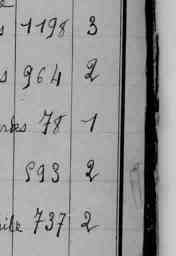 s 1198 3
s 964 2
78 1
593 2
737 2